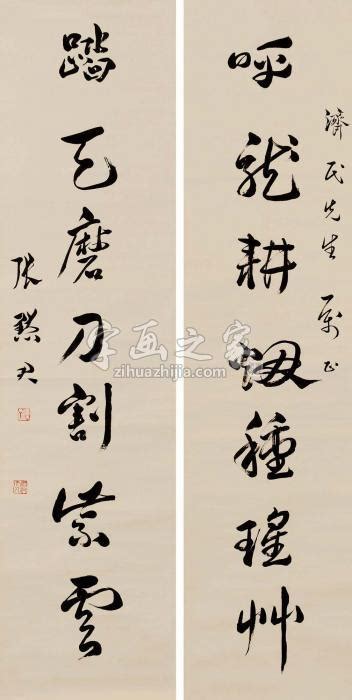 濟民先生屬正
呼龍耕煙種瑤艸
踏天磨刀割紫雲
張默君
字画之家
zihuazhijia.com